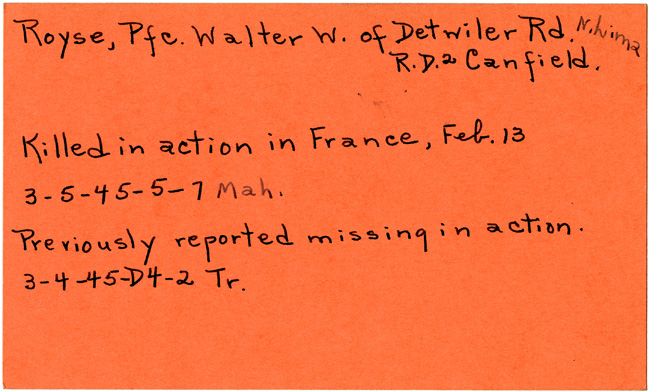 Royse, Pfc. Walter W. of Detwiler Rd. N. Lima
R.D.2 Canfield.
Killed in action in France, Feb. 13
3-5-45-5-7 Mah.
Previously reported missing in action.
3-4-45-D4-2 Tr.